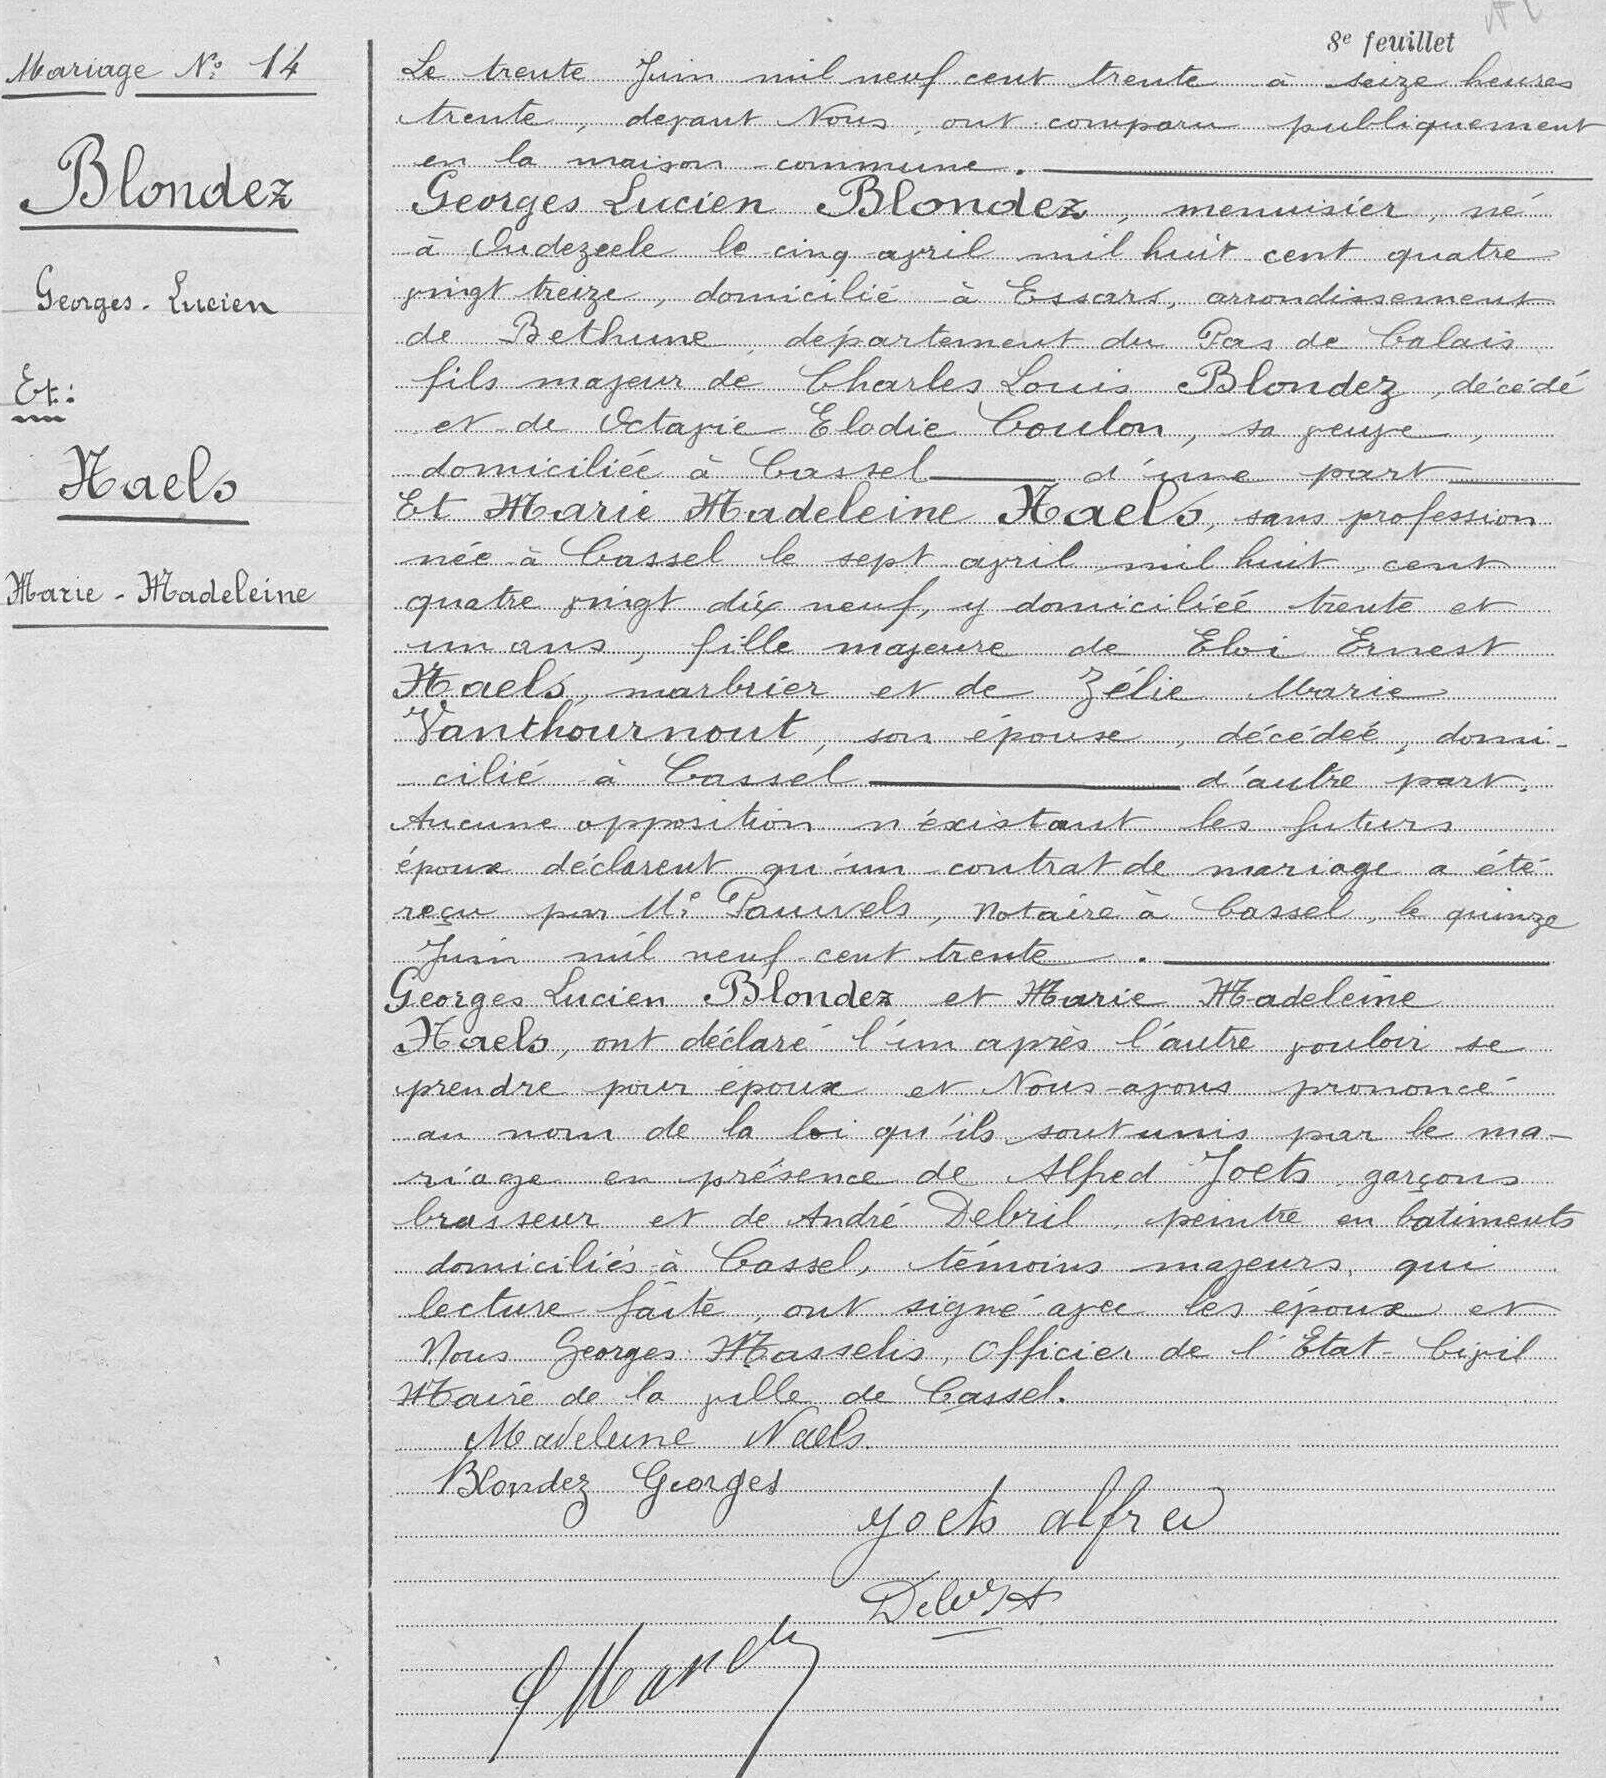 8e feuillet
Mariage No 14
Blondez
Georges-Lucien
Et:
Naels
Marie-Madeleine
Le trente Juin mil neuf cent trente à seize heures
trente, devant Nous, ont comparu publiquement
en la maison commune.
Georges Lucien Blondez, menuisier, né
à Oudezeele le cinq avril mil huit cent quatre
vingt treize, domicilié à Essars, arrondissement
de Bethune, département du Pas de Calais
fils majeur de Charles Louis Blondez, décédé
et de Octavie Elodie Coulon, sa veuve,
domiciliée à Cassel d'une part
Et Marie Madeleine Naels, sans profession
née à Cassel le sept avril mil huit cent
quatre vingt dix neuf, y domiciliée trente et
un ans, fille majeure de Eloi Ernest
Naels, marbrier et de Zélie Marie
Vanthournout, son épouse, décédée, domi-
cilié à Cassel d'autre part.
Aucune opposition n'éxistant les futurs
époux déclarent qu'un contrat de mariage a été
reçu par Me Pauwels, Notaire à Cassel, le quinze
Juin mil neuf cent trente.
Georges Lucien Blondez et Marie Madeleine
Naels, ont déclaré l'un après l'autre vouloir se
prendre pour époux et Nous avons prononcé
au nom de la loi qu'ils sont unis par le ma-
riage en présence de Alfred Joets, garçons
brasseur et de André Debril, peintre en batiments
domiciliés à Cassel, témoins majeurs, qui
lecture faite, ont signé avec les époux et
Nous Georges Masselis, Officier de l'Etat-Civil
Maire de la ville de Cassel.
Madeleine Naels.
Blondez Georges
Joets alfred